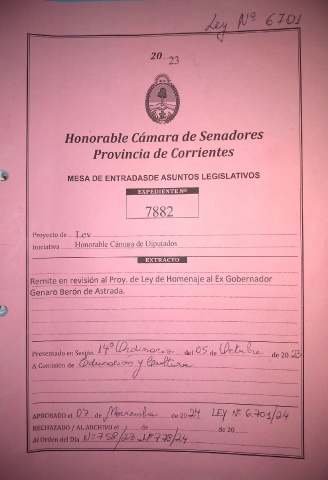 Ley Nº 6701
20 23
Honorable Cámara de Senadores
Provincia de Corrientes
MESA DE ENTRADASDE ASUNTOS LEGISLATIVOS
EXPEDIENTE Nº
7882
Proyecto de Ley
Iniciativa Honorable Cámara de Diputados
EXTRACTO
Remite en revisión al Proy. de Ley de Homenaje al Ex Gobernador
Genaro Berón de Astrada.
Presentado en Sesión 14º Ordinaria del 05 de Octubre de 2023
A Comisión de Educación y Cultura
APROBADO el 07 de Noviembre de 2024 LEY Nº 6.701/24
RECHAZADO / AL ARCHIVO el de de 20
Al Orden del Día Nº 758/23 Nº 778/24